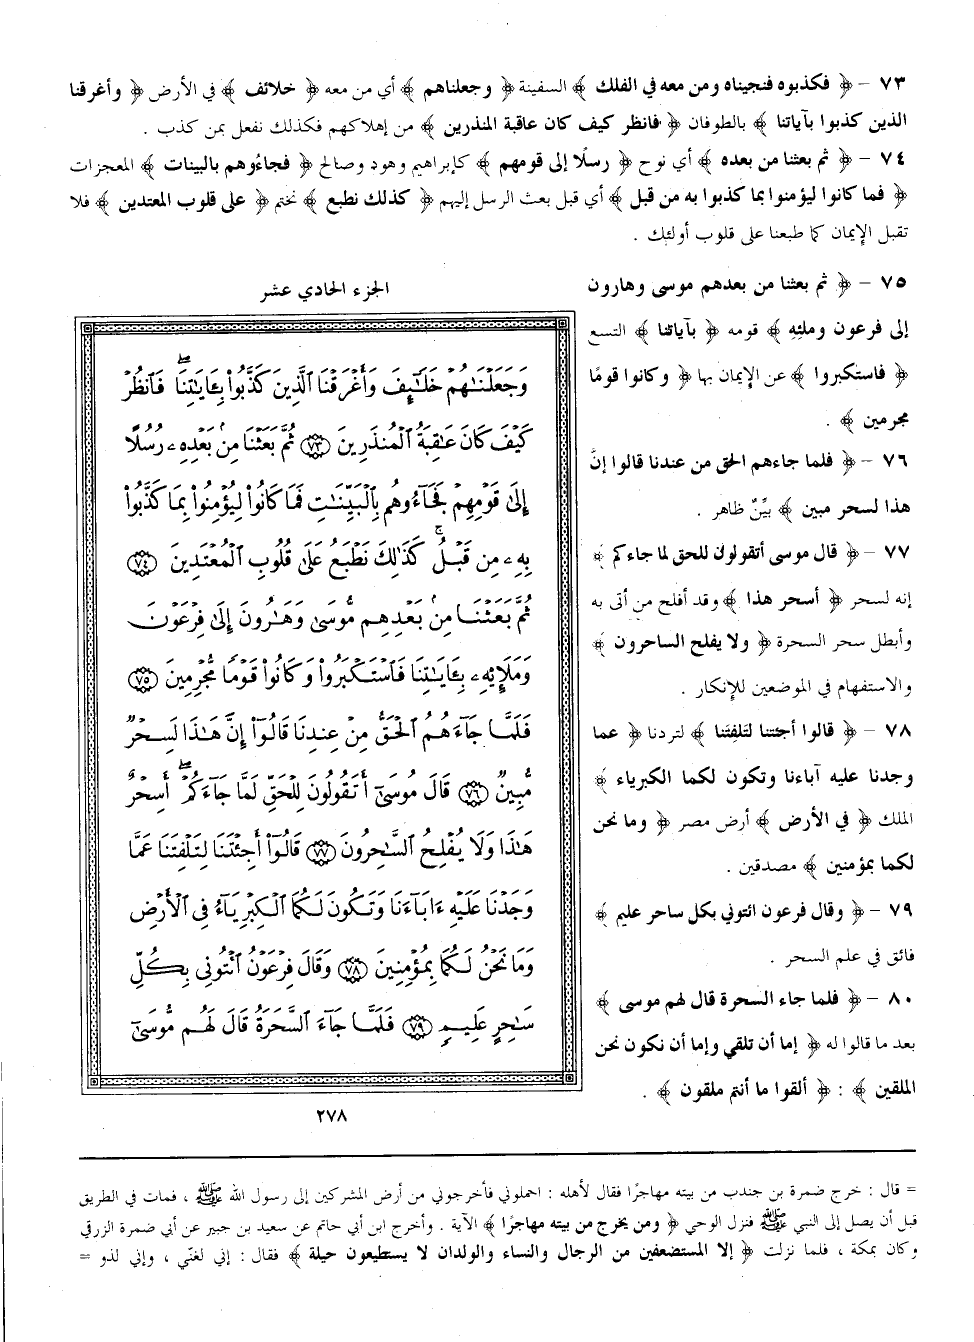 ٧٣ - ﴿ فكذبوه فنجيناه ومن معه في الفلك ﴾ السفينة ﴿ وجعلناهم ﴾ أي من معه ﴿ خلائف ﴾ في الأرض ﴿ وأغرقنا
الذين كذبوا بآياتنا ﴾ بالطوفان ﴿ فانظر كيف كان عاقبة المنذرين ﴾ من إهلاكهم فكذلك نفعل بمن كذب .
٧٤ - ﴿ ثم بعثنا من بعده ﴾ أي نوح ﴿ رسلًا إلى قومهم ﴾ كإبراهيم وهود وصالح ﴿ فجاءوهم بالبينات ﴾ المعجزات
﴿ فما كانوا ليؤمنوا بما كذبوا به من قبل ﴾ أي قبل بعث الرسل إليهم ﴿ كذلك نطبع ﴾ نختم ﴿ على قلوب المعتدين ﴾ فلا
تقبل الإيمان كما طبعنا على قلوب أولئك .
٧٥ - ﴿ ثم بعثنا من بعدهم موسى وهارون
إلى فرعون وملئِه ﴾ قومه ﴿ بآياتنا ﴾ التسع
﴿ فاستكبروا ﴾ عن الإيمان بها ﴿ وكانوا قومًا
مجرمين ﴾ .
٧٦ - ﴿ فلما جاءهم الحق من عندنا قالوا إنَّ
هذا لسحر مبين ﴾ بيِّنٌ ظاهر .
٧٧ - ﴿ قال موسى أتقولون للحق لما جاءكم ﴾
إنه لسحر ﴿ أسحر هذا ﴾ وقد أفلح من أتى به
وأبطل سحر السحرة ﴿ ولا يفلح الساحرون ﴾
والاستفهام في الموضعين للإنكار .
٧٨ - ﴿ قالوا أجئتنا لتَلفِتَنا ﴾ لتردنا ﴿ عما
وجدنا عليه آباءنا وتكون لكما الكبرياء ﴾
الملك ﴿ في الأرض ﴾ أرض مصر ﴿ وما نحن
لكما بمؤمنين ﴾ مصدقين .
٧٩ - ﴿ وقال فرعون ائتوني بكل ساحر عليم ﴾
فائق في علم السحر .
٨٠ - ﴿ فلما جاء السحرة قال لهم موسى ﴾
بعد ما قالوا له ﴿ إما أن تلقي وإما أن نكون نحن
الملقين ﴾ : ﴿ ألقوا ما أنتم ملقون ﴾ .
الجزء الحادي عشر
وَجَعَلْنَٰهُمْ خَلَٰٓئِفَ وَأَغْرَقْنَا ٱلَّذِينَ كَذَّبُوا۟ بِـَٔايَٰتِنَا ۖ فَٱنظُرْ
كَيْفَ كَانَ عَٰقِبَةُ ٱلْمُنذَرِينَ ٧٣ ثُمَّ بَعَثْنَا مِنۢ بَعْدِهِۦ رُسُلًا
إِلَىٰ قَوْمِهِمْ فَجَآءُوهُم بِٱلْبَيِّنَٰتِ فَمَا كَانُوا۟ لِيُؤْمِنُوا۟ بِمَا كَذَّبُوا۟
بِهِۦ مِن قَبْلُ ۚ كَذَٰلِكَ نَطْبَعُ عَلَىٰ قُلُوبِ ٱلْمُعْتَدِينَ ٧٤
ثُمَّ بَعَثْنَا مِنۢ بَعْدِهِم مُّوسَىٰ وَهَٰرُونَ إِلَىٰ فِرْعَوْنَ
وَمَلَإِي۟هِۦ بِـَٔايَٰتِنَا فَٱسْتَكْبَرُوا۟ وَكَانُوا۟ قَوْمًا مُّجْرِمِينَ ٧٥
فَلَمَّا جَآءَهُمُ ٱلْحَقُّ مِنْ عِندِنَا قَالُوٓا۟ إِنَّ هَٰذَا لَسِحْرٌ
مُّبِينٌ ٧٦ قَالَ مُوسَىٰٓ أَتَقُولُونَ لِلْحَقِّ لَمَّا جَآءَكُمْ ۖ أَسِحْرٌ
هَٰذَا وَلَا يُفْلِحُ ٱلسَّٰحِرُونَ ٧٧ قَالُوٓا۟ أَجِئْتَنَا لِتَلْفِتَنَا عَمَّا
وَجَدْنَا عَلَيْهِ ءَابَآءَنَا وَتَكُونَ لَكُمَا ٱلْكِبْرِيَآءُ فِى ٱلْأَرْضِ
وَمَا نَحْنُ لَكُمَا بِمُؤْمِنِينَ ٧٨ وَقَالَ فِرْعَوْنُ ٱئْتُونِى بِكُلِّ
سَٰحِرٍ عَلِيمٍ ٧٩ فَلَمَّا جَآءَ ٱلسَّحَرَةُ قَالَ لَهُم مُّوسَىٰٓ
٢٧٨
= قال : خرج ضمرة بن جندب من بيته مهاجرًا فقال لأهله : احملوني فأخرجوني من أرض المشركين إلى رسول الله ﷺ ، فمات في الطريق
قبل أن يصل إلى النبي ﷺ فنزل الوحي ﴿ ومن يخرج من بيته مهاجرًا ﴾ الآية . وأخرج ابن أبي حاتم عن سعيد بن جبير عن أبي ضمرة الزرقي
وكان بمكة ، فلما نزلت ﴿ إلا المستضعفين من الرجال والنساء والولدان لا يستطيعون حيلة ﴾ فقال : إني لغنّي ، وإني لذو =